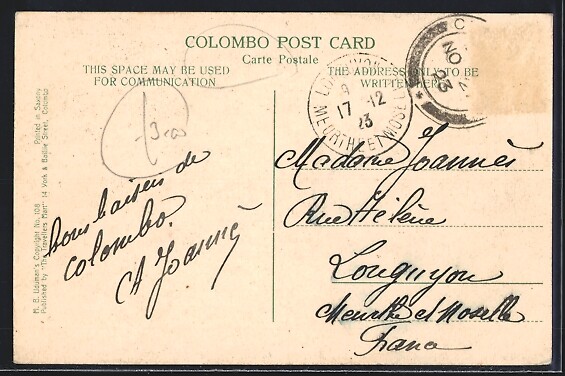 COLOMBO POST CARD
Carte Postale
THIS SPACE MAY BE USED
FOR COMMUNICATION
THE ADDRESS ONLY TO BE
WRITTEN HERE
17 12
23
MEURTHE ET MOSELLE
C
NO
23
bons baisers de
colombo.
Joannès
et
Madame Joannès
Rue Hélène
Longuyon
Meurthe et Moselle
France
Printed in Saxony
M. B. Uduman's Copyright No. 108
Published by "The Travellers Mart" 14 York & Baillie Street, Colombo